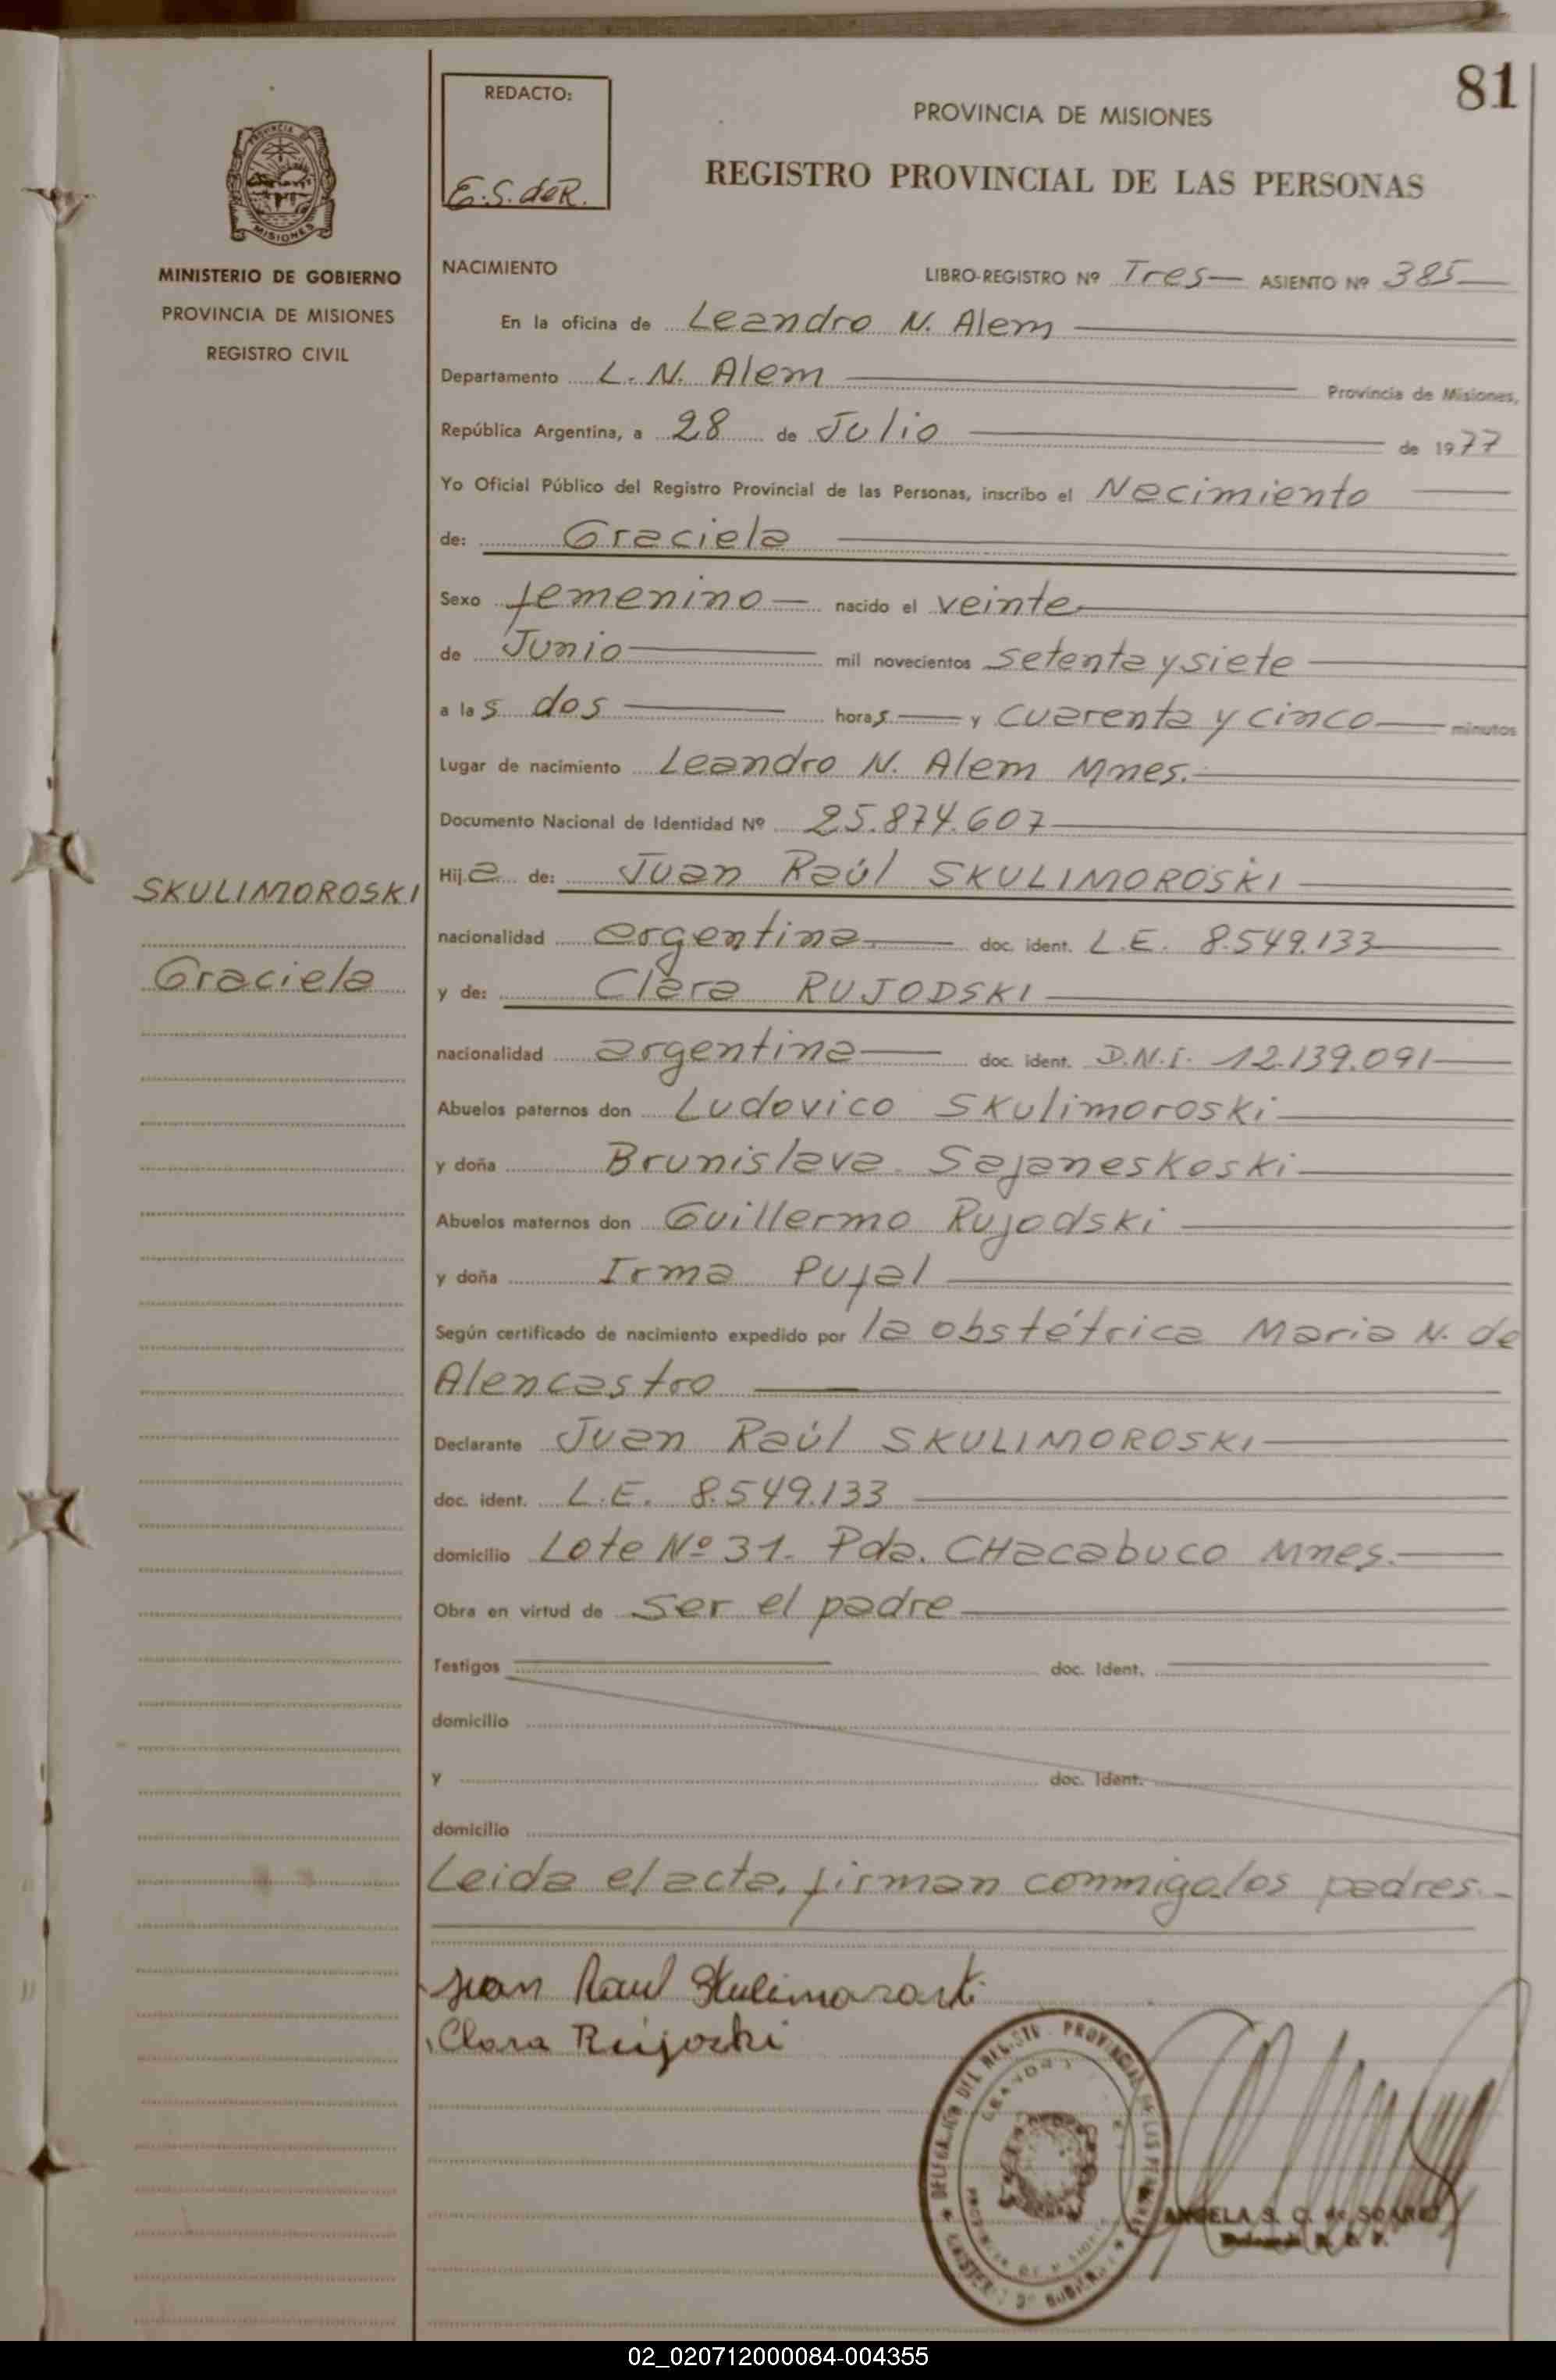 81
REDACTO:
E.S. deR.
PROVINCIA DE MISIONES
REGISTRO PROVINCIAL DE LAS PERSONAS
PROVINCIA DE
MISIONES
MINISTERIO DE GOBIERNO
PROVINCIA DE MISIONES
REGISTRO CIVIL
SKULIMOROSKI
Graciela
NACIMIENTO LIBRO-REGISTRO Nº Tres ASIENTO Nº 385
En la oficina de Leandro N. Alem
Departamento L. N. Alem Provincia de Misiones,
República Argentina, a 28 de Julio de 1977
Yo Oficial Público del Registro Provincial de las Personas, inscribo el Nacimiento
de: Graciela
Sexo femenino nacido el veinte
de Junio mil novecientos setenta y siete
a las dos horas y cuarenta y cinco minutos
Lugar de nacimiento Leandro N. Alem Mnes.
Documento Nacional de Identidad Nº 25.874.607
Hija de: Juan Raúl SKULIMOROSKI
nacionalidad argentina doc. ident. L.E. 8.549.133
y de: Clara RUJODSKI
nacionalidad argentina doc. ident. D.N.I. 12.139.091
Abuelos paternos don Ludovico Skulimoroski
y doña Brunislava Sajaneskoski
Abuelos maternos don Guillermo Rujodski
y doña Irma Pujal
Según certificado de nacimiento expedido por la obstétrica Maria N. de
Alencastro
Declarante Juan Raúl SKULIMOROSKI
doc. ident. L.E. 8.549.133
domicilio Lote Nº 31. Pda. CHacabuco Mnes.
Obra en virtud de ser el padre
Testigos doc. Ident.
domicilio
y doc. Ident.
domicilio
Leida el acta, firman conmigo los padres.
Juan Raul Skulimoroski
Clara Reijoski
PROVINCIAL DE LAS PERSONAS
ANGELA S. de SOARES
02_020712000084-004355